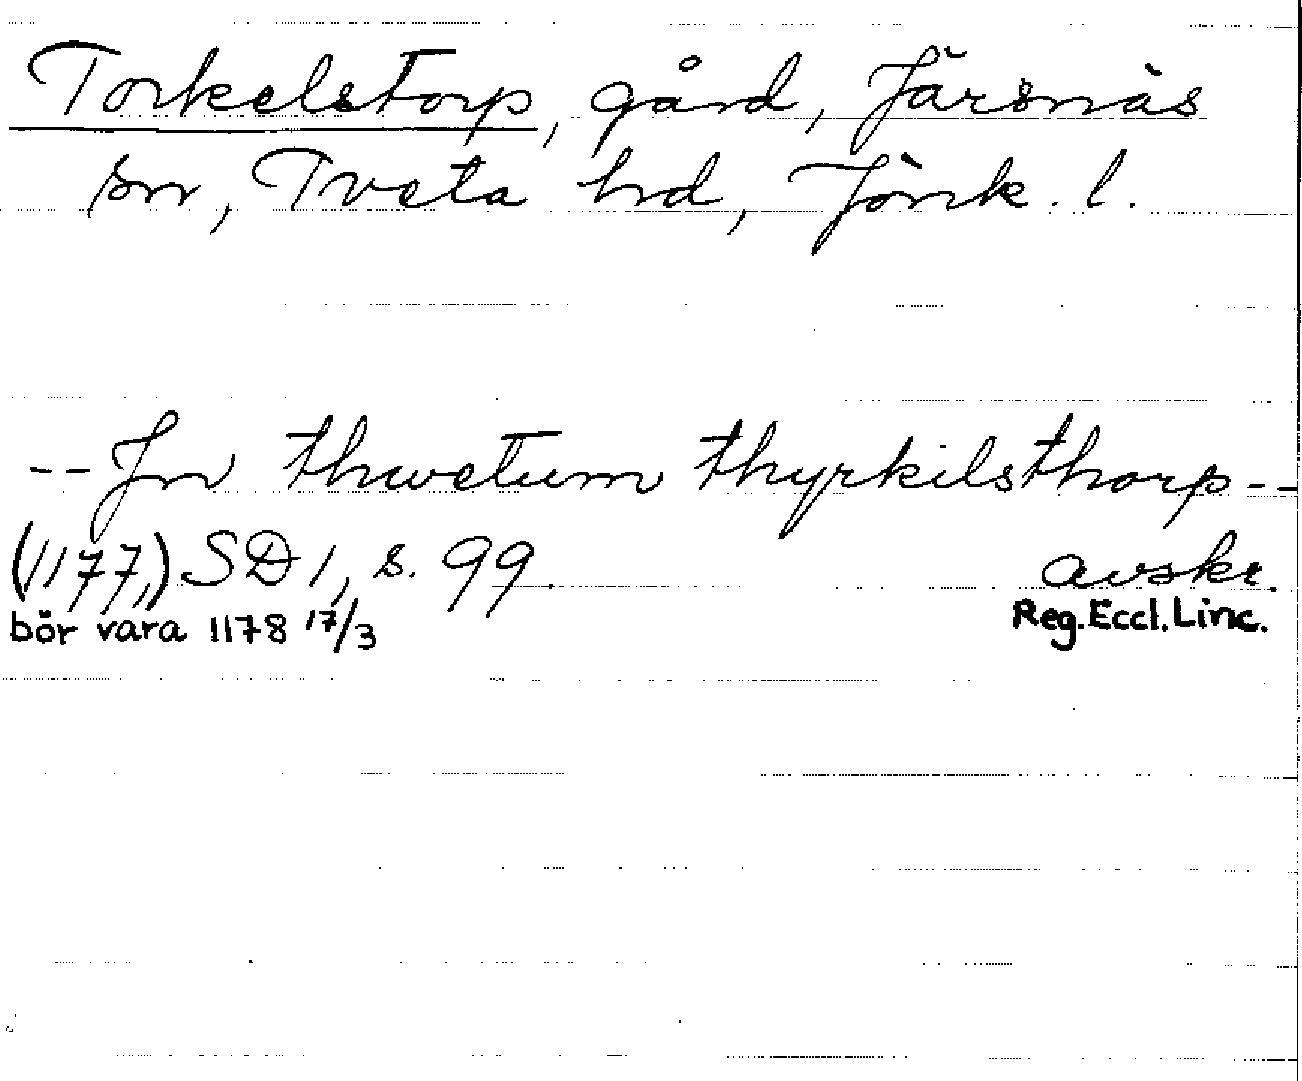 Torkelstorp, gård, Järsnäs
sn, Tveta hd, Jönk. l.
-- Jn thwetum thyrkilsthorp --
(1177,) SD 1, s. 99. avskr.
bör vara 1178 17/3 Reg. Eccl. Linc.